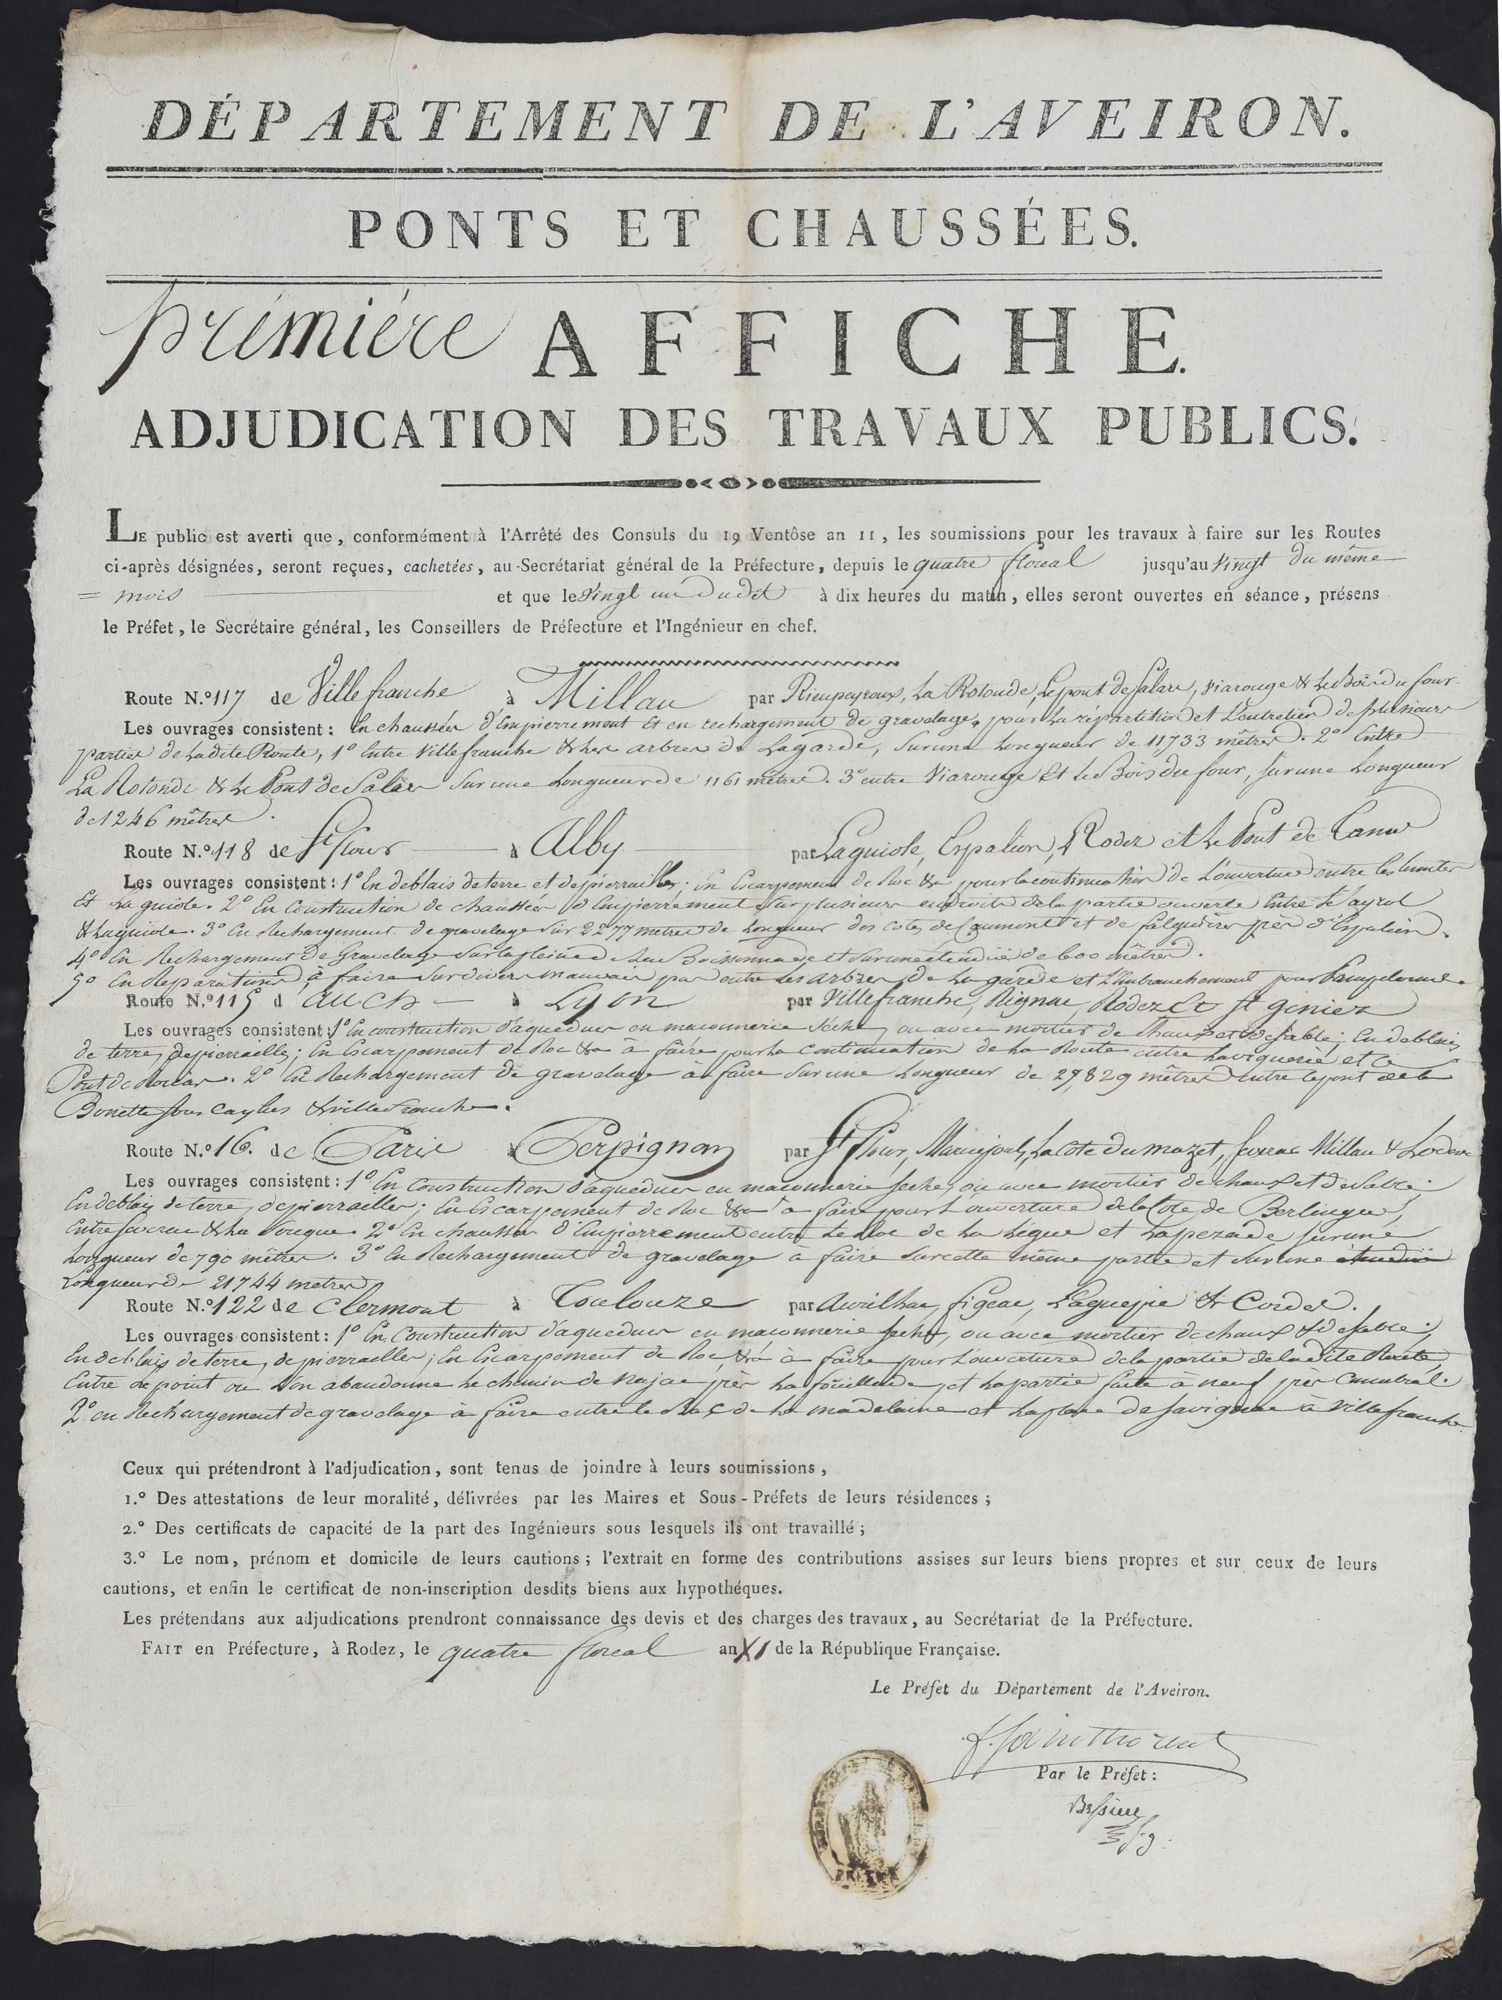 DÉPARTEMENT DE L'AVEIRON.
PONTS ET CHAUSSÉES.
première AFFICHE.
ADJUDICATION DES TRAVAUX PUBLICS.
LE public est averti que, conformément à l'Arrêté des Consuls du 19 Ventôse an 11, les soumissions pour les travaux à faire sur les Routes
ci-après désignées, seront reçues, cachetées, au Secrétariat général de la Préfecture, depuis le quatre floreal jusqu'au vingt du même
= mois et que le vingt un dudit à dix heures du matin, elles seront ouvertes en séance, présens
le Préfet, le Secrétaire général, les Conseillers de Préfecture et l'Ingénieur en chef.
Route N.º 117 de Villefranche à Millau par Rieupeyroux, La Rotonde, Le pont de Salars, Viarouge & Le Bois du four.
Les ouvrages consistent : En chaussées d'Empierrement et en rechargement de gravelage, pour la répartition et L'entretien de plusieurs
parties de Ladite Route, 1º Entre Villefranche & Les arbres de Lagarde, sur une Longueur de 11733 mètres. 2º Entre
La Rotonde & Le Pont de Salars sur une Longueur de 1161 mètres. 3º entre Viarouge et Le Bois du four, sur une Longueur
de 1246 mètres.
Route N.º 118 de St flour à Alby par Laguiole, Espalion, Rodez et Le Pont de Tanus
Les ouvrages consistent : 1º En deblais de terre et de pierrailles; en Escarpement de Roc &a pour la continuation de L'ouverture entre les limites
et La guiole. 2º En Construction de chaussées d'Empierrement sur plusieurs endroits de la partie ouverte Entre le ayrol
& Laguiole. 3º En Rechargement de gravelage sur 2277 mètres de Longueur des cotes de Caumont et de falguières près d'Espalion.
4º En Rechargement de Gravelage sur la plaine de Lau Boissonnade et sur une étendüe de 600 mètres.
5º En Reparations à faire sur divers mauvais pas entre Les arbres de La garde et L'Embranchement pour Pampelonne.
Route N.º 115 d'auch à Lyon par Villefranche, Rignac, Rodez et St geniez
Les ouvrages consistent : 1º En construction d'aqueducs en maconnerie seche, ou avec mortier de chaux et de sable; En deblais
de terre, de pierrailles; En Escarpement de Roc &a à faire pour la continuation de La Route entre Laviguerie et Le
Pont de . 2º En Rechargement de gravelage à faire sur une Longueur de 27829 mètres entre le pont de la
Bonette sous Caylus & Villefranche.
Route N.º 16. de Paris à Perpignan par St flour, Marvejols, La Cote du mazet, Severac Millau & Lodeve
Les ouvrages consistent : 1º En Construction d'aqueducs en maconnerie seche, ou avec mortier de chaux et de sable;
En deblais de terre, de pierrailles; En Escarpement de Roc &a à faire pour L'ouverture de la Cote de Berlengue,
Entre severac & La . 2º En chaussées d'Empierrement entre Le Roc de La Ligue et Lapezade sur une
Longueur de 790 mètres. 3º En Rechargement de gravelage à faire sur cette même partie et sur une étendüe
Longueur de 21744 mètres
Route N.º 122 de Clermont à Toulouze par Aurilhac, figeac, Laguepie & Cordes.
Les ouvrages consistent : 1º En Construction d'aqueducs en maconnerie seche, ou avec mortier de chaux & de sable;
En deblais de terre, de pierrailles; En Escarpement de Roc, &a à faire pour L'ouverture de la partie de Ladite Route
Entre Le point où L'on abandonne Le chemin de Najac près La fouillade, et La partie faite à neuf près .
2º en Rechargement de gravelage à faire entre Le Roc de La madelaine et La place de Savignac à Villefranche
Ceux qui prétendront à l'adjudication, sont tenus de joindre à leurs soumissions,
1.º Des attestations de leur moralité, délivrées par les Maires et Sous-Préfets de leurs résidences ;
2.º Des certificats de capacité de la part des Ingénieurs sous lesquels ils ont travaillé ;
3.º Le nom, prénom et domicile de leurs cautions ; l'extrait en forme des contributions assises sur leurs biens propres et sur ceux de leurs
cautions, et enfin le certificat de non-inscription desdits biens aux hypothéques.
Les prétendans aux adjudications prendront connaissance des devis et des charges des travaux, au Secrétariat de la Préfecture.
FAIT en Préfecture, à Rodez, le quatre floreal an XI de la République Française.
Le Préfet du Département de l'Aveiron.
f. Sainthorent
Par le Préfet :